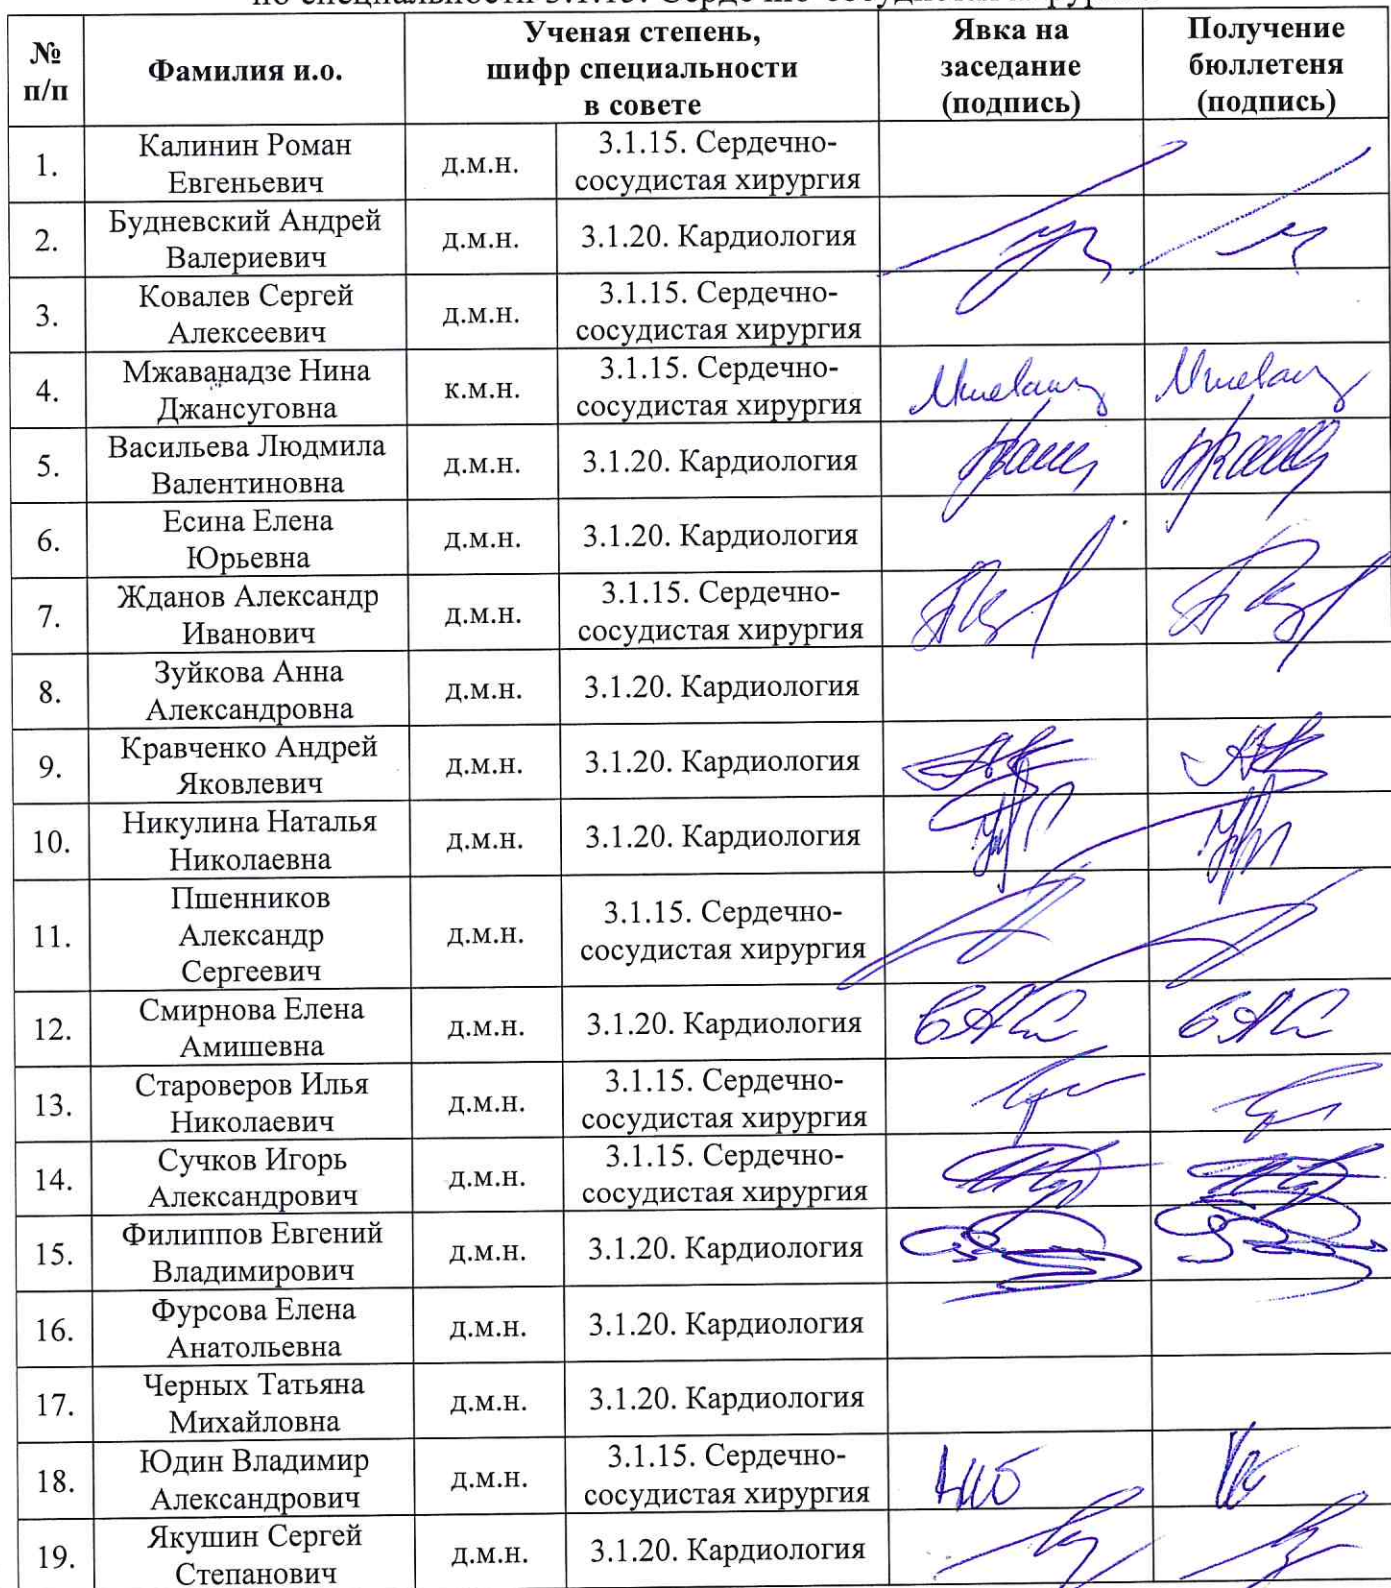 по специальности 3.1.15. Сердечно-сосудистая хирургия
№ п/п
Фамилия и.о.
Ученая степень,
шифр специальности
в совете
Явка на
заседание
(подпись)
Получение
бюллетеня
(подпись)
1.
Калинин Роман
Евгеньевич
д.м.н.
3.1.15. Сердечно-
сосудистая хирургия
2.
Будневский Андрей
Валериевич
д.м.н.
3.1.20. Кардиология
3.
Ковалев Сергей
Алексеевич
д.м.н.
3.1.15. Сердечно-
сосудистая хирургия
4.
Мжаванадзе Нина
Джансуговна
к.м.н.
3.1.15. Сердечно-
сосудистая хирургия
5.
Васильева Людмила
Валентиновна
д.м.н.
3.1.20. Кардиология
6.
Есина Елена
Юрьевна
д.м.н.
3.1.20. Кардиология
7.
Жданов Александр
Иванович
д.м.н.
3.1.15. Сердечно-
сосудистая хирургия
8.
Зуйкова Анна
Александровна
д.м.н.
3.1.20. Кардиология
9.
Кравченко Андрей
Яковлевич
д.м.н.
3.1.20. Кардиология
10.
Никулина Наталья
Николаевна
д.м.н.
3.1.20. Кардиология
11.
Пшенников
Александр
Сергеевич
д.м.н.
3.1.15. Сердечно-
сосудистая хирургия
12.
Смирнова Елена
Амишевна
д.м.н.
3.1.20. Кардиология
13.
Староверов Илья
Николаевич
д.м.н.
3.1.15. Сердечно-
сосудистая хирургия
14.
Сучков Игорь
Александрович
д.м.н.
3.1.15. Сердечно-
сосудистая хирургия
15.
Филиппов Евгений
Владимирович
д.м.н.
3.1.20. Кардиология
16.
Фурсова Елена
Анатольевна
д.м.н.
3.1.20. Кардиология
17.
Черных Татьяна
Михайловна
д.м.н.
3.1.20. Кардиология
18.
Юдин Владимир
Александрович
д.м.н.
3.1.15. Сердечно-
сосудистая хирургия
19.
Якушин Сергей
Степанович
д.м.н.
3.1.20. Кардиология